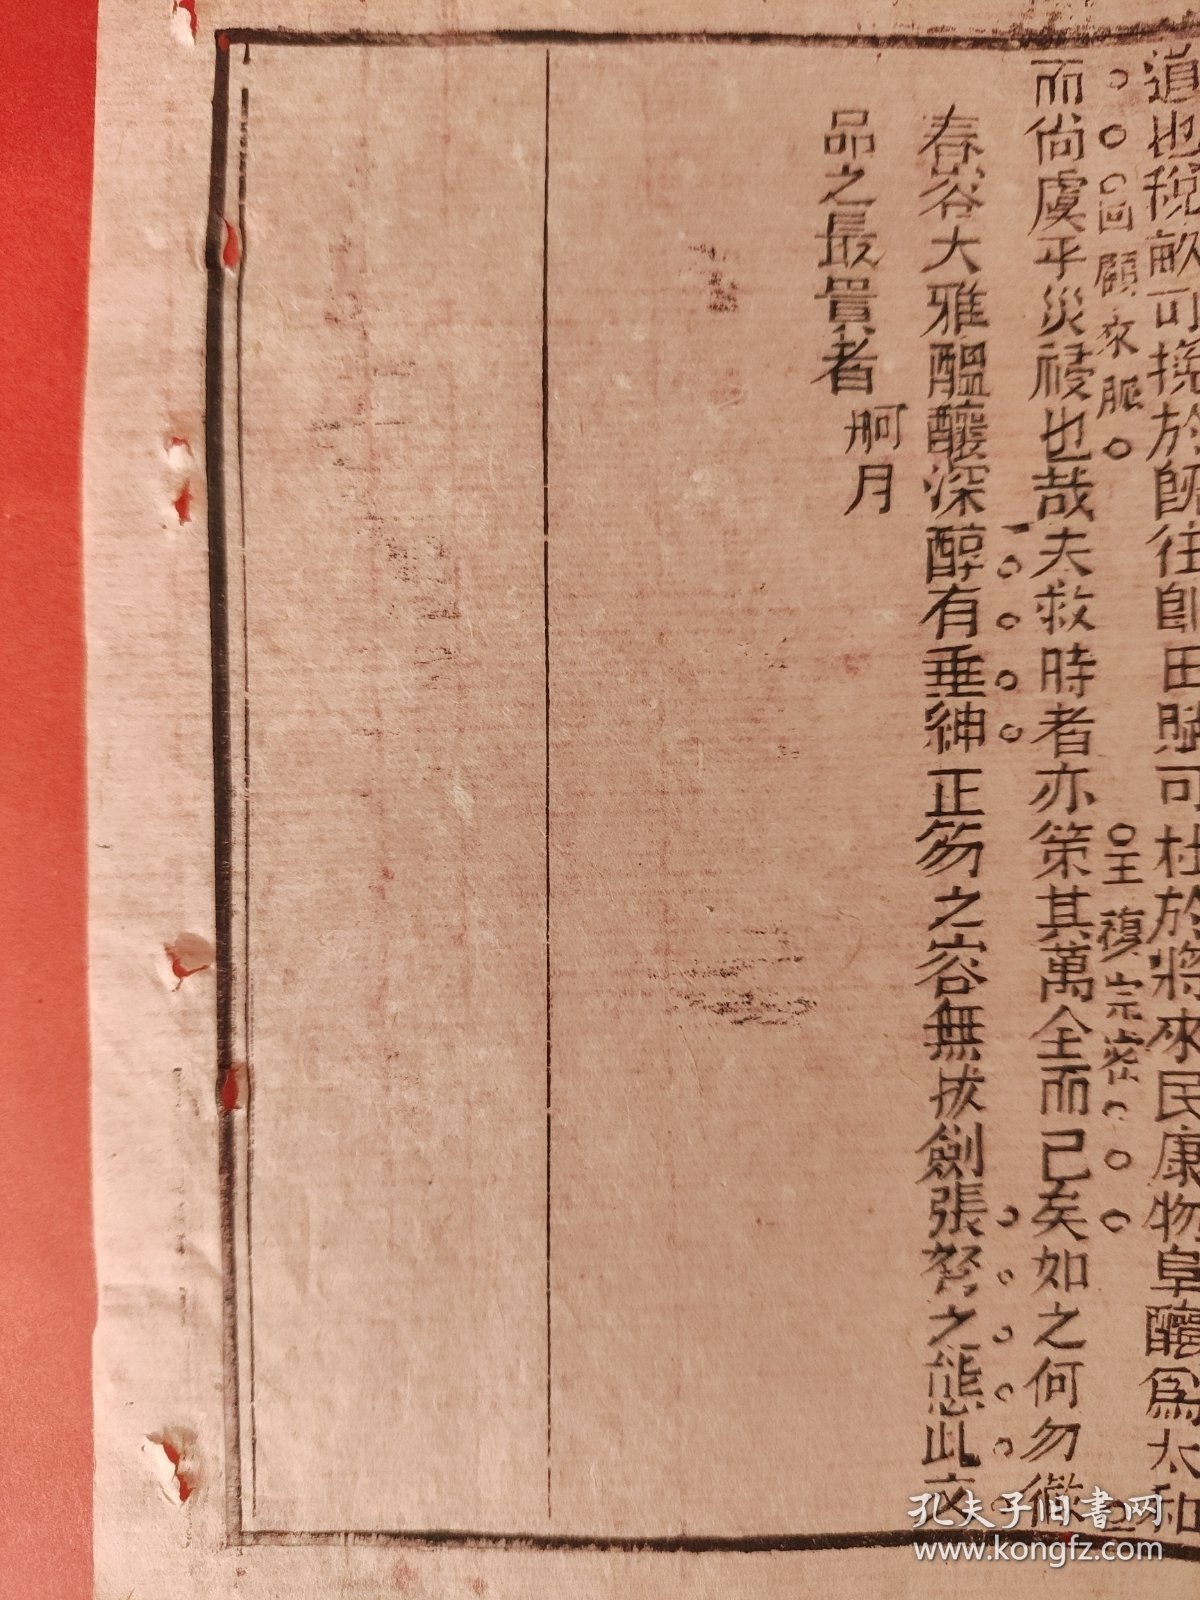 道也稅畝可挽於既往卽田賦可杜於將來民康物阜釀爲太和
回顧來脈
而尚虞乎災祲也哉夫救時者亦策其萬全而已矣如之何勿徹
春容大雅醞釀深醇有垂紳正笏之容無拔劍張弩之態此文
品之最貴者
舸月
孔夫子旧书网
www.kongfz.com